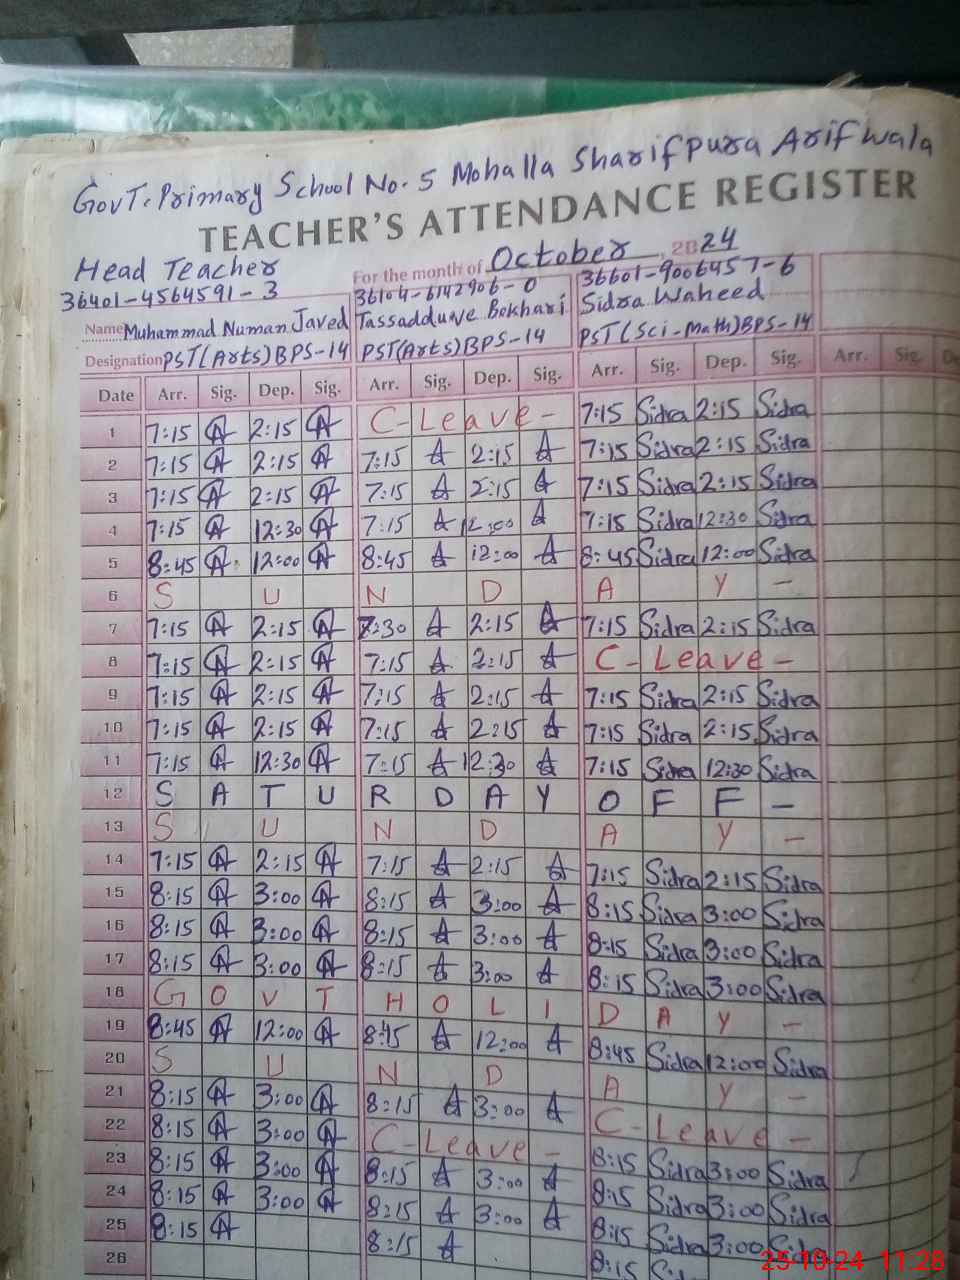 Govt. Primary School No. 5 Mohalla Sharifpura Arifwala
TEACHER'S ATTENDANCE REGISTER
Head Teacher For the month of October, 2024
36401-4564591-3 36104-6142906-0 36601-9006457-6
Name Muhammad Numan Javed Tassadduve Bokhari Sidra Waheed
Designation PST(Arts)BPS-14 PST(Arts)BPS-14 PST(Sci-Math)BPS-14
Date Arr. Sig. Dep. Sig. Arr. Sig. Dep. Sig. Arr. Sig. Dep. Sig. Arr. Sig. De
1 7:15 2:15 C-Leave- 7:15 Sidra 2:15 Sidra
2 7:15 2:15 7:15 2:15 7:15 Sidra 2:15 Sidra
3 7:15 2:15 7:15 2:15 7:15 Sidra 2:15 Sidra
4 7:15 12:30 7:15 7:15 Sidra 12:30 Sidra
5 8:45 12:00 8:45 12:00 8:45 Sidra 12:00 Sidra
6 S U N D A Y -
7 7:15 2:15 7:30 2:15 7:15 Sidra 2:15 Sidra
8 7:15 2:15 7:15 2:15 C-Leave-
9 7:15 2:15 7:15 2:15 7:15 Sidra 2:15 Sidra
10 7:15 2:15 7:15 2:15 7:15 Sidra 2:15 Sidra
11 7:15 12:30 7:15 12:30 7:15 Sidra 12:30 Sidra
12 S A T U R D A Y O F F -
13 S U N D A Y -
14 7:15 2:15 7:15 2:15 7:15 Sidra 2:15 Sidra
15 8:15 3:00 8:15 3:00 8:15 Sidra 3:00 Sidra
16 8:15 3:00 8:15 3:00 8:15 Sidra 3:00 Sidra
17 8:15 3:00 8:15 3:00 8:15 Sidra 3:00 Sidra
18 G O V T H O L I D A Y -
19 8:45 12:00 8:45 12:00 8:45 Sidra 12:00 Sidra
20 S U N D A Y -
21 8:15 3:00 8:15 3:00 C-Leave-
22 8:15 3:00 C-Leave- 8:15 Sidra 3:00 Sidra
23 8:15 3:00 8:15 3:00 8:15 Sidra 3:00 Sidra
24 8:15 3:00 8:15 3:00 8:15 Sidra 3:00
25 8:15 8:15 8:15
26
25-10-24 11:28